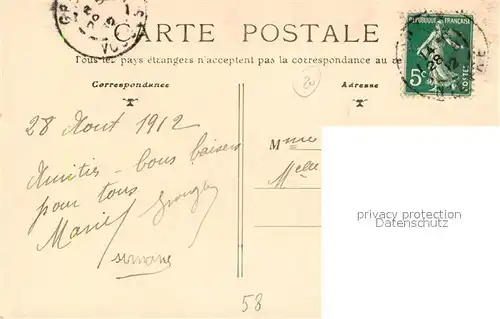 CARTE POSTALE
Tous les pays étrangers n'acceptent pas la correspondance au
RÉPUBLIQUE FRANÇAISE
5c
POSTES
28
12
VOSGES
20
Correspondance
Adresse
28 Aout 1912
Amitiés - bons baisers
pour tous
Marie
Mme
Melle
privacy protection
Datenschutz
58